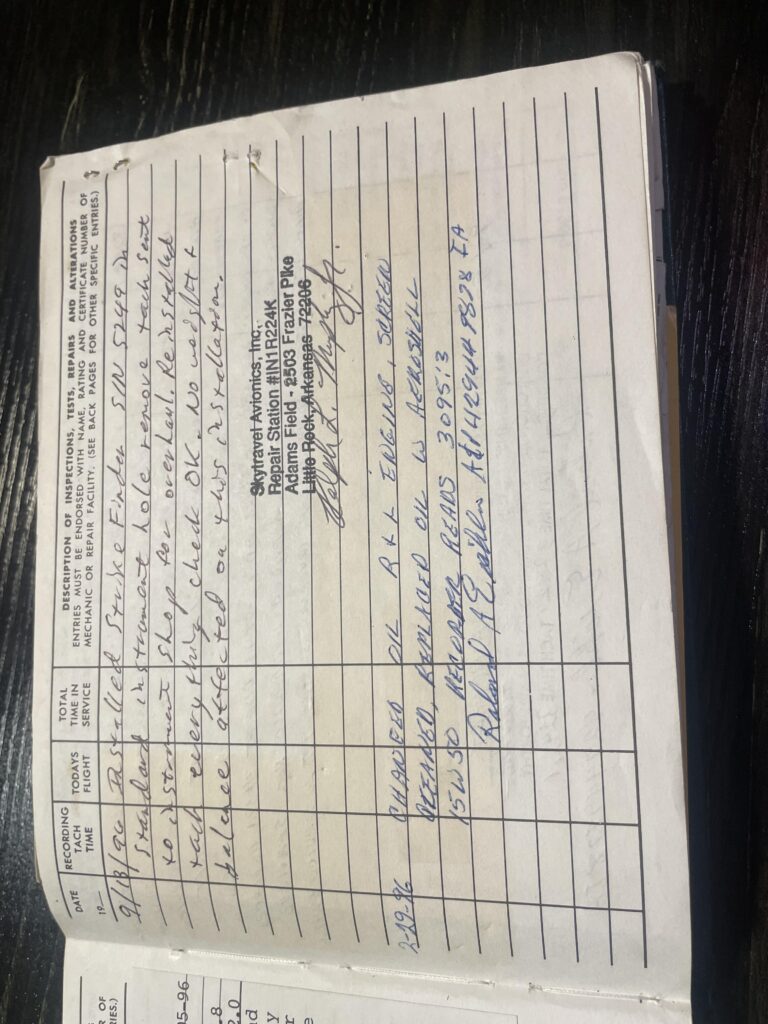 DATE
19—
RECORDING
TACH
TIME
TODAYS
FLIGHT
TOTAL
TIME IN
SERVICE
DESCRIPTION OF INSPECTIONS, TESTS, REPAIRS AND ALTERATIONS
ENTRIES MUST BE ENDORSED WITH NAME, RATING AND CERTIFICATE NUMBER OF
MECHANIC OR REPAIR FACILITY. (SEE BACK PAGES FOR OTHER SPECIFIC ENTRIES.)
9/13/96 Installed Strike Finder S/N 5249 in
standard instrument hole remove tach sent
to instrument shop for overhaul. Reinstalled
tach everything check OK. No weight &
balance affected on this installation.
Skytravel Avionics, Inc.
Repair Station #IN1R224K
Adams Field - 2503 Frazier Pike
Little Rock, Arkansas 72206
Ralph L. Jr.
2-29-96 CHANGED OIL R & L ENGINE, SCREEN
CLEANED, REPLACED OIL W AEROSHELL
15W50 RECORDER READS 3095.3
OF
RIES.)
95-96
.8
2.0
nd
y
r
e